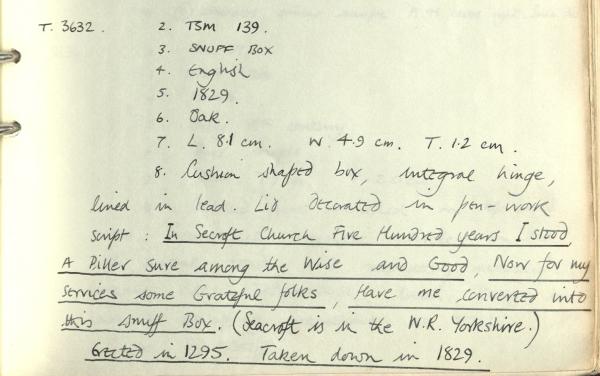 T. 3632. 2. TSM 139.
3. SNUFF BOX
4. English
5. 1829.
6. Oak.
7. L. 8.1 cm. W. 4.9 cm. T. 1.2 cm.
8. Cushion shaped box, integral hinge,
lined in lead. Lid decorated in pen-work
script: In Secroft Church Five Hundred years I stood
A Piller sure among the Wise and Good, Now for my
services some Grateful folks, Have me converted into
this snuff Box. (Seacroft is in the W.R. Yorkshire.)
Erected in 1295. Taken down in 1829.